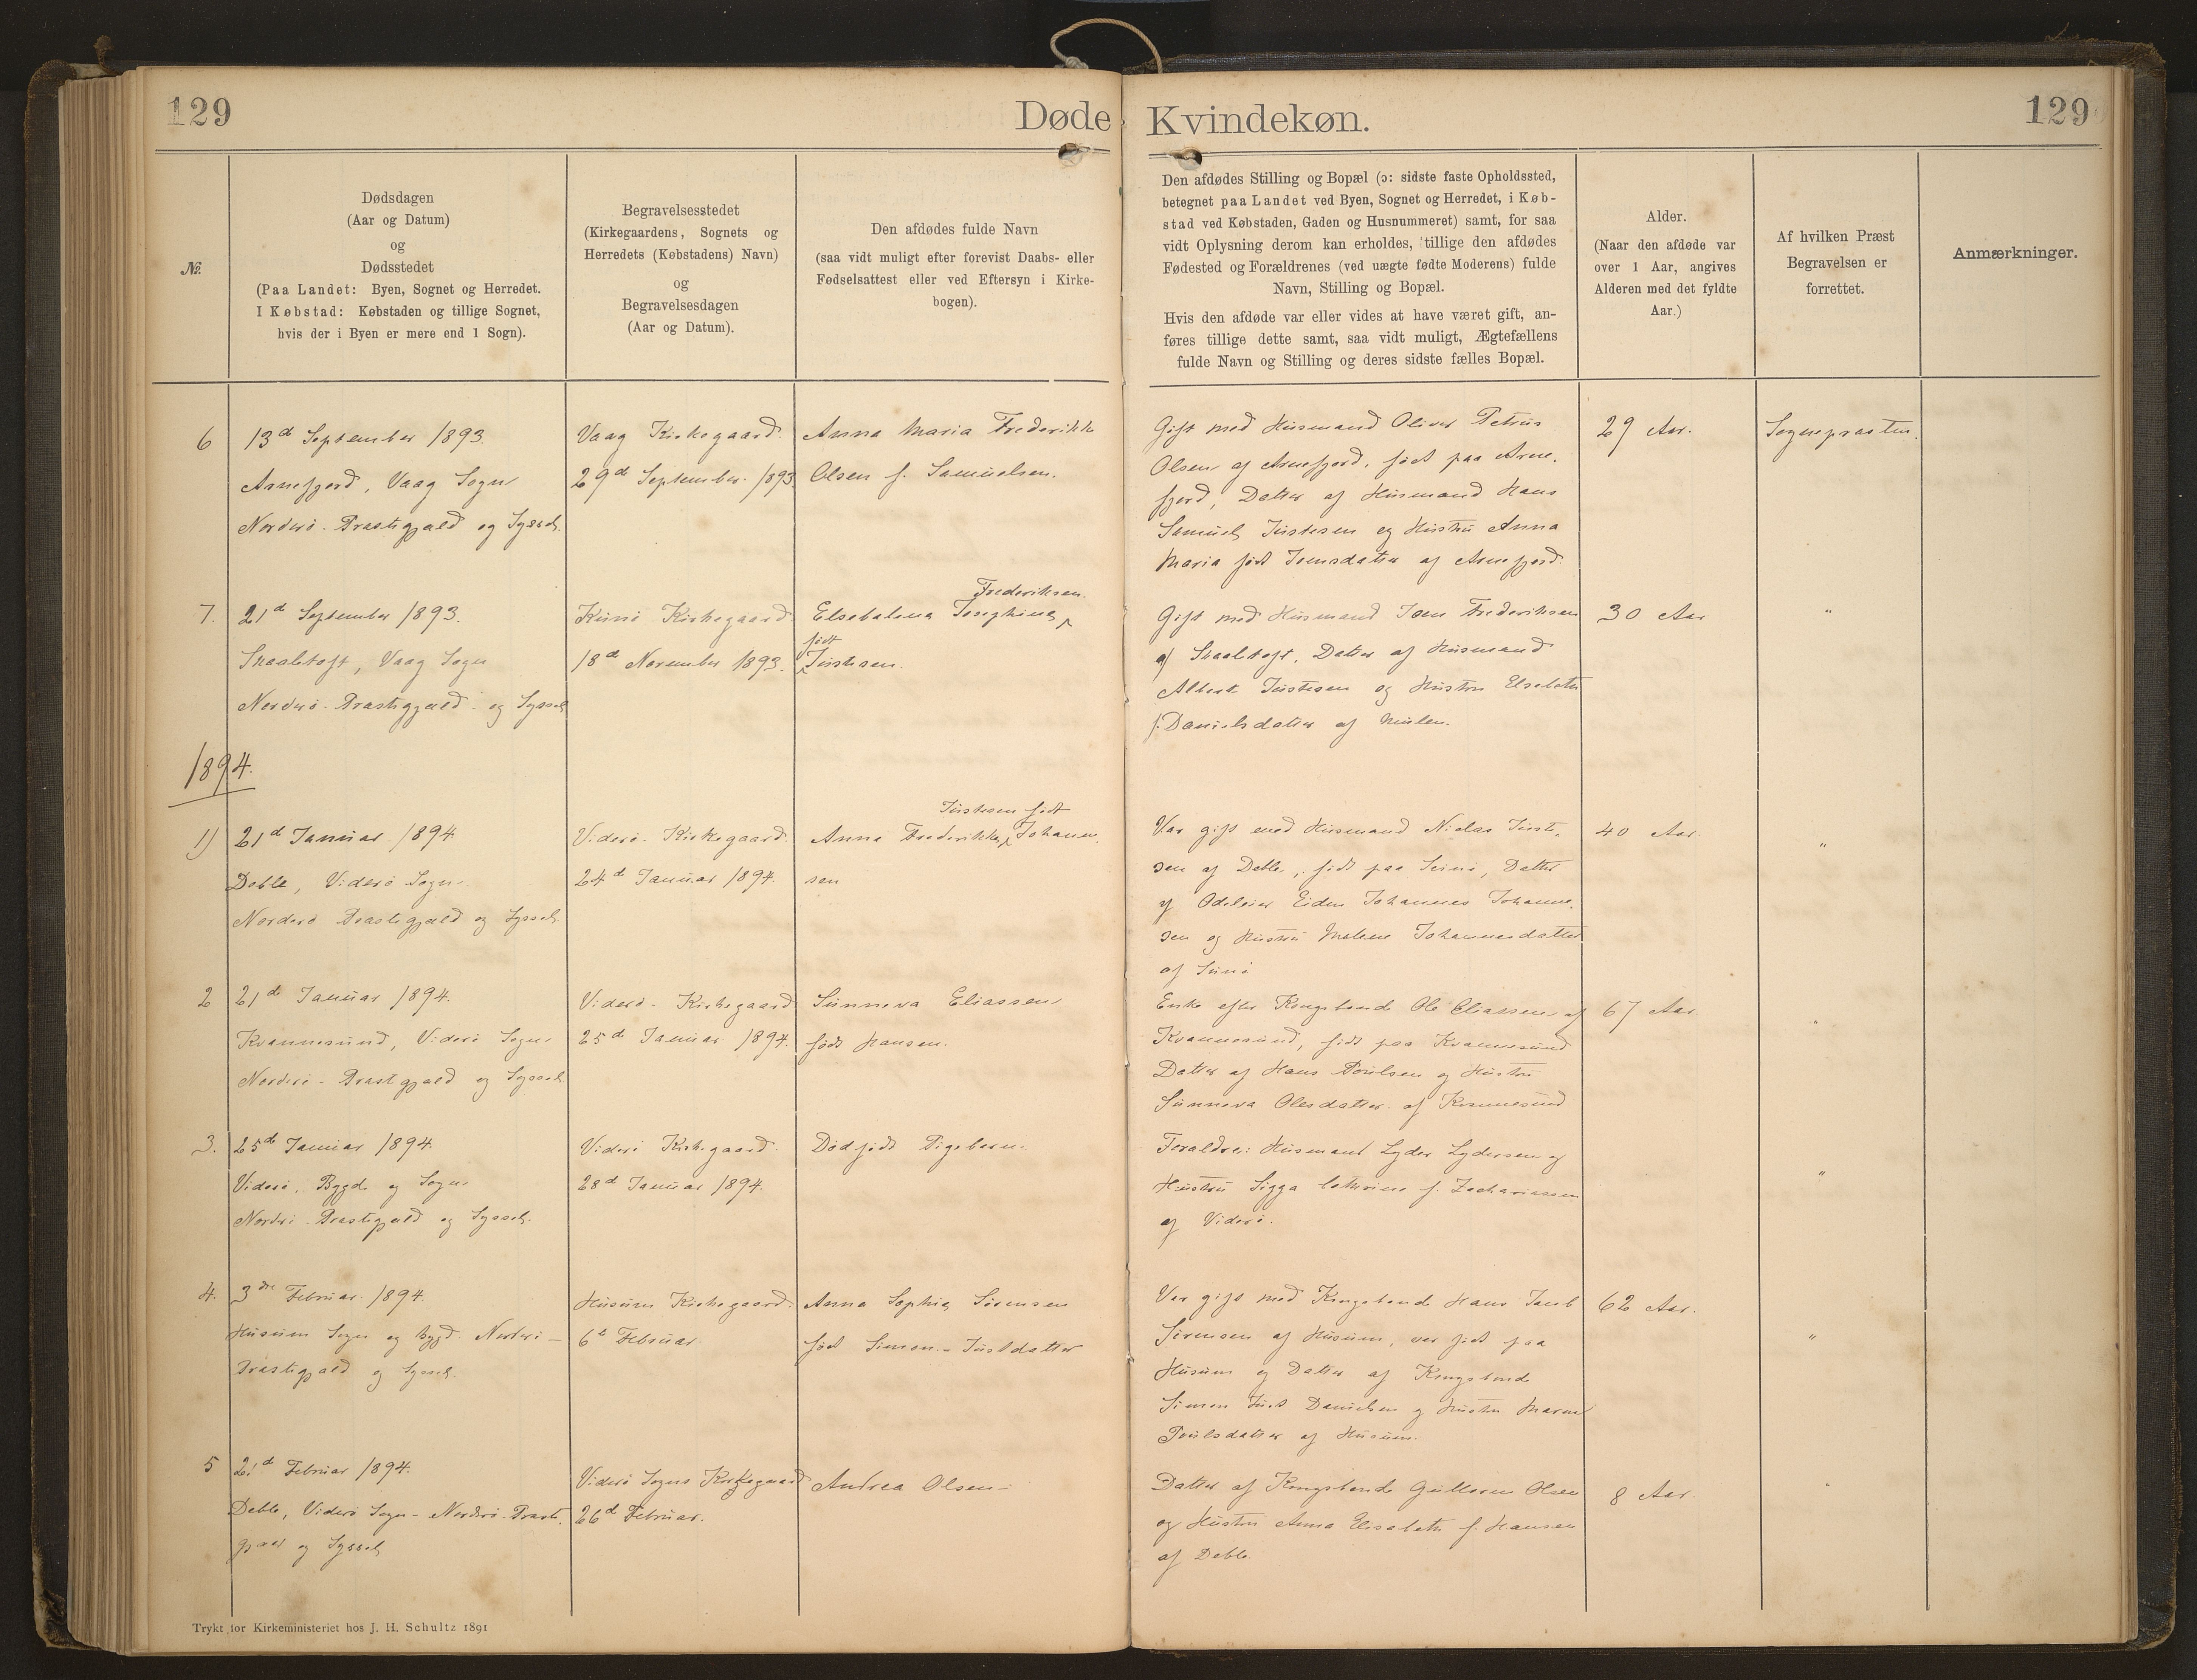 129
Døde
Kvindekøn.
129
№
Dødsdagen
(Aar og Datum)
og
Dødsstedet
(Paa Landet: Byen, Sognet og Herredet.
I Købstad: Købstaden og tillige Sognet,
hvis der i Byen er mere end 1 Sogn).
Begravelsesstedet
(Kirkegaardens, Sognets og
Herredets (Købstadens) Navn)
og
Begravelsesdagen
(Aar og Datum).
Den afdødes fulde Navn
(saa vidt muligt efter forevist Daabs- eller
Fødselsattest eller ved Eftersyn i Kirke-
bogen).
Den afdødes Stilling og Bopæl (ɔ: sidste faste Opholdssted,
betegnet paa Landet ved Byen, Sognet og Herredet, i Køb-
stad ved Købstaden, Gaden og Husnummeret) samt, for saa
vidt Oplysning derom kan erholdes, tillige den afdødes
Fødested og Forældrenes (ved uægte fødte Moderens) fulde
Navn, Stilling og Bopæl.
Hvis den afdøde var eller vides at have været gift, an-
føres tillige dette samt, saa vidt muligt, Ægtefællens
fulde Navn og Stilling og deres sidste fælles Bopæl.
Alder.
(Naar den afdøde var
over 1 Aar, angives
Alderen med det fyldte
Aar.)
Af hvilken Præst
Begravelsen er
forrettet.
Anmærkninger.
6
13d September 1893.
Arnefjord, Vaag Sogn
Norderø-Præstegjæld og Syssel.
Vaag Kirkegaard.
29d September 1893
Anna Maria Frederikke
Olsen f. Samuelsen.
Gift med Husmand Oliver Petrus
Olsen af Arnefjord, født paa Arne-
fjord, Datter af Husmand Hans
Samuel Justesen og Hustru Anna
Maria født Joensdatter af Arnefjord.
29 Aar.
Sognepræsten.
7.
21d September 1893.
Skaaletoft, Vaag Sogn
Norderø-Præstegjæld og Syssel
Kunø Kirkegaard
18d November 1893.
Frederiksen.
Elsebalena Josephina
født
Justesen.
Gift med Husmand Joen Frederiksen
af Skaaletoft, Datter af Husmand
Albert Justesen og Hustru Elsebeth
f. Danielsdatter af
30 Aar
"
1894.
1)
21d Januar 1894
Deble, Viderø Sogn
Norderø Præstegjæld og Syssel.
Viderø-Kirkegaard.
24d Januar 1894.
Justesen født
Anna Frederikka Johanne-
sen
Var gift med Husmand Niclas Juste-
sen af Deble, født paa Svinø, Datter
af Odelsier Eiden Johannes Johanne-
sen og Hustru Malene Johannesdatter
af Svinø
40 Aar.
"
2
21de Januar 1894.
Kvannesund, Viderø Sogn
Norderø-Præstegjæld og Syssel
Viderø-Kirkegaard
25d Januar 1894.
Sunneva Eliassen
født Hansen.
Enke efter Kongsbonde Ole Eliassen af
Kvannesund, født paa Kvannesund
Datter af Hans Poulsen og Hustru
Sunneva Olesdatter af Kvannesund
67 Aar
"
3.
25de Januar 1894.
Viderø, Bygd og Sogn
Norderø-Præstegjæld og Syssel.
Viderø Kirkegaard
28d Januar 1894.
Dødfødt Pigebarn.
Forældre: Husmand Lyder Lydersen og
Hustru Sigga Cathrine f. Zachariassen
af Viderø.
"
4.
3die Februar 1894.
Husum Sogn og Bygd. Norderø-
Præstegjæld og Syssel.
Husum Kirkegaard.
6te Februar.
Anna Sophia Sørensen
født Simon-Justdatter
Var gift med Kongsbonde Hans Jacob
Sørensen af Husum, var født paa
Husum og Datter af Kongsbonde
Simon Just Danielsen og Hustru Maren
Poulsdatter af Husum.
62 Aar.
"
5
21d Februar 1894.
Deble, Viderø Sogn-Norderø-Præste-
gjæld og Syssel
Viderø Sogns Kirkegaard
26d Februar.
Andrea Olsen
Datter af Kongsbonde Guttorm Olsen
og Hustru Anna Elisabeth f. Hansen
af Deble.
8 Aar.
"
Trykt for Kirkeministeriet hos J. H. Schultz 1891